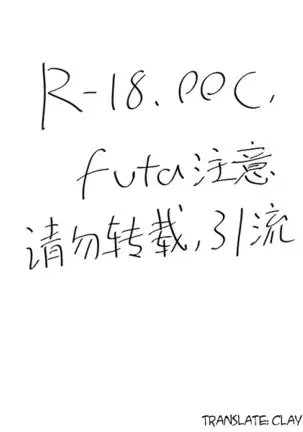 R-18.OOC,
futa注意
请勿转载,引流
TRANSLATE: CLAY